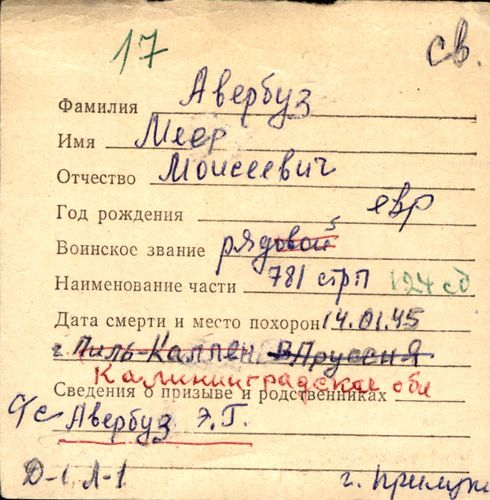 17 св.
Фамилия Авербуз
Имя Меер
Отчество Моисеевич
Год рождения евр
Воинское звание рядовой 5
Наименование части 781 стрп 124 сд
Дата смерти и место похорон 14.01.45
г. Пиль-Каллен В Пруссия
Калининградская обл
Сведения о призыве и родственниках
Авербуз Э.Г.
Д-1, Л-1 г. Прилуки